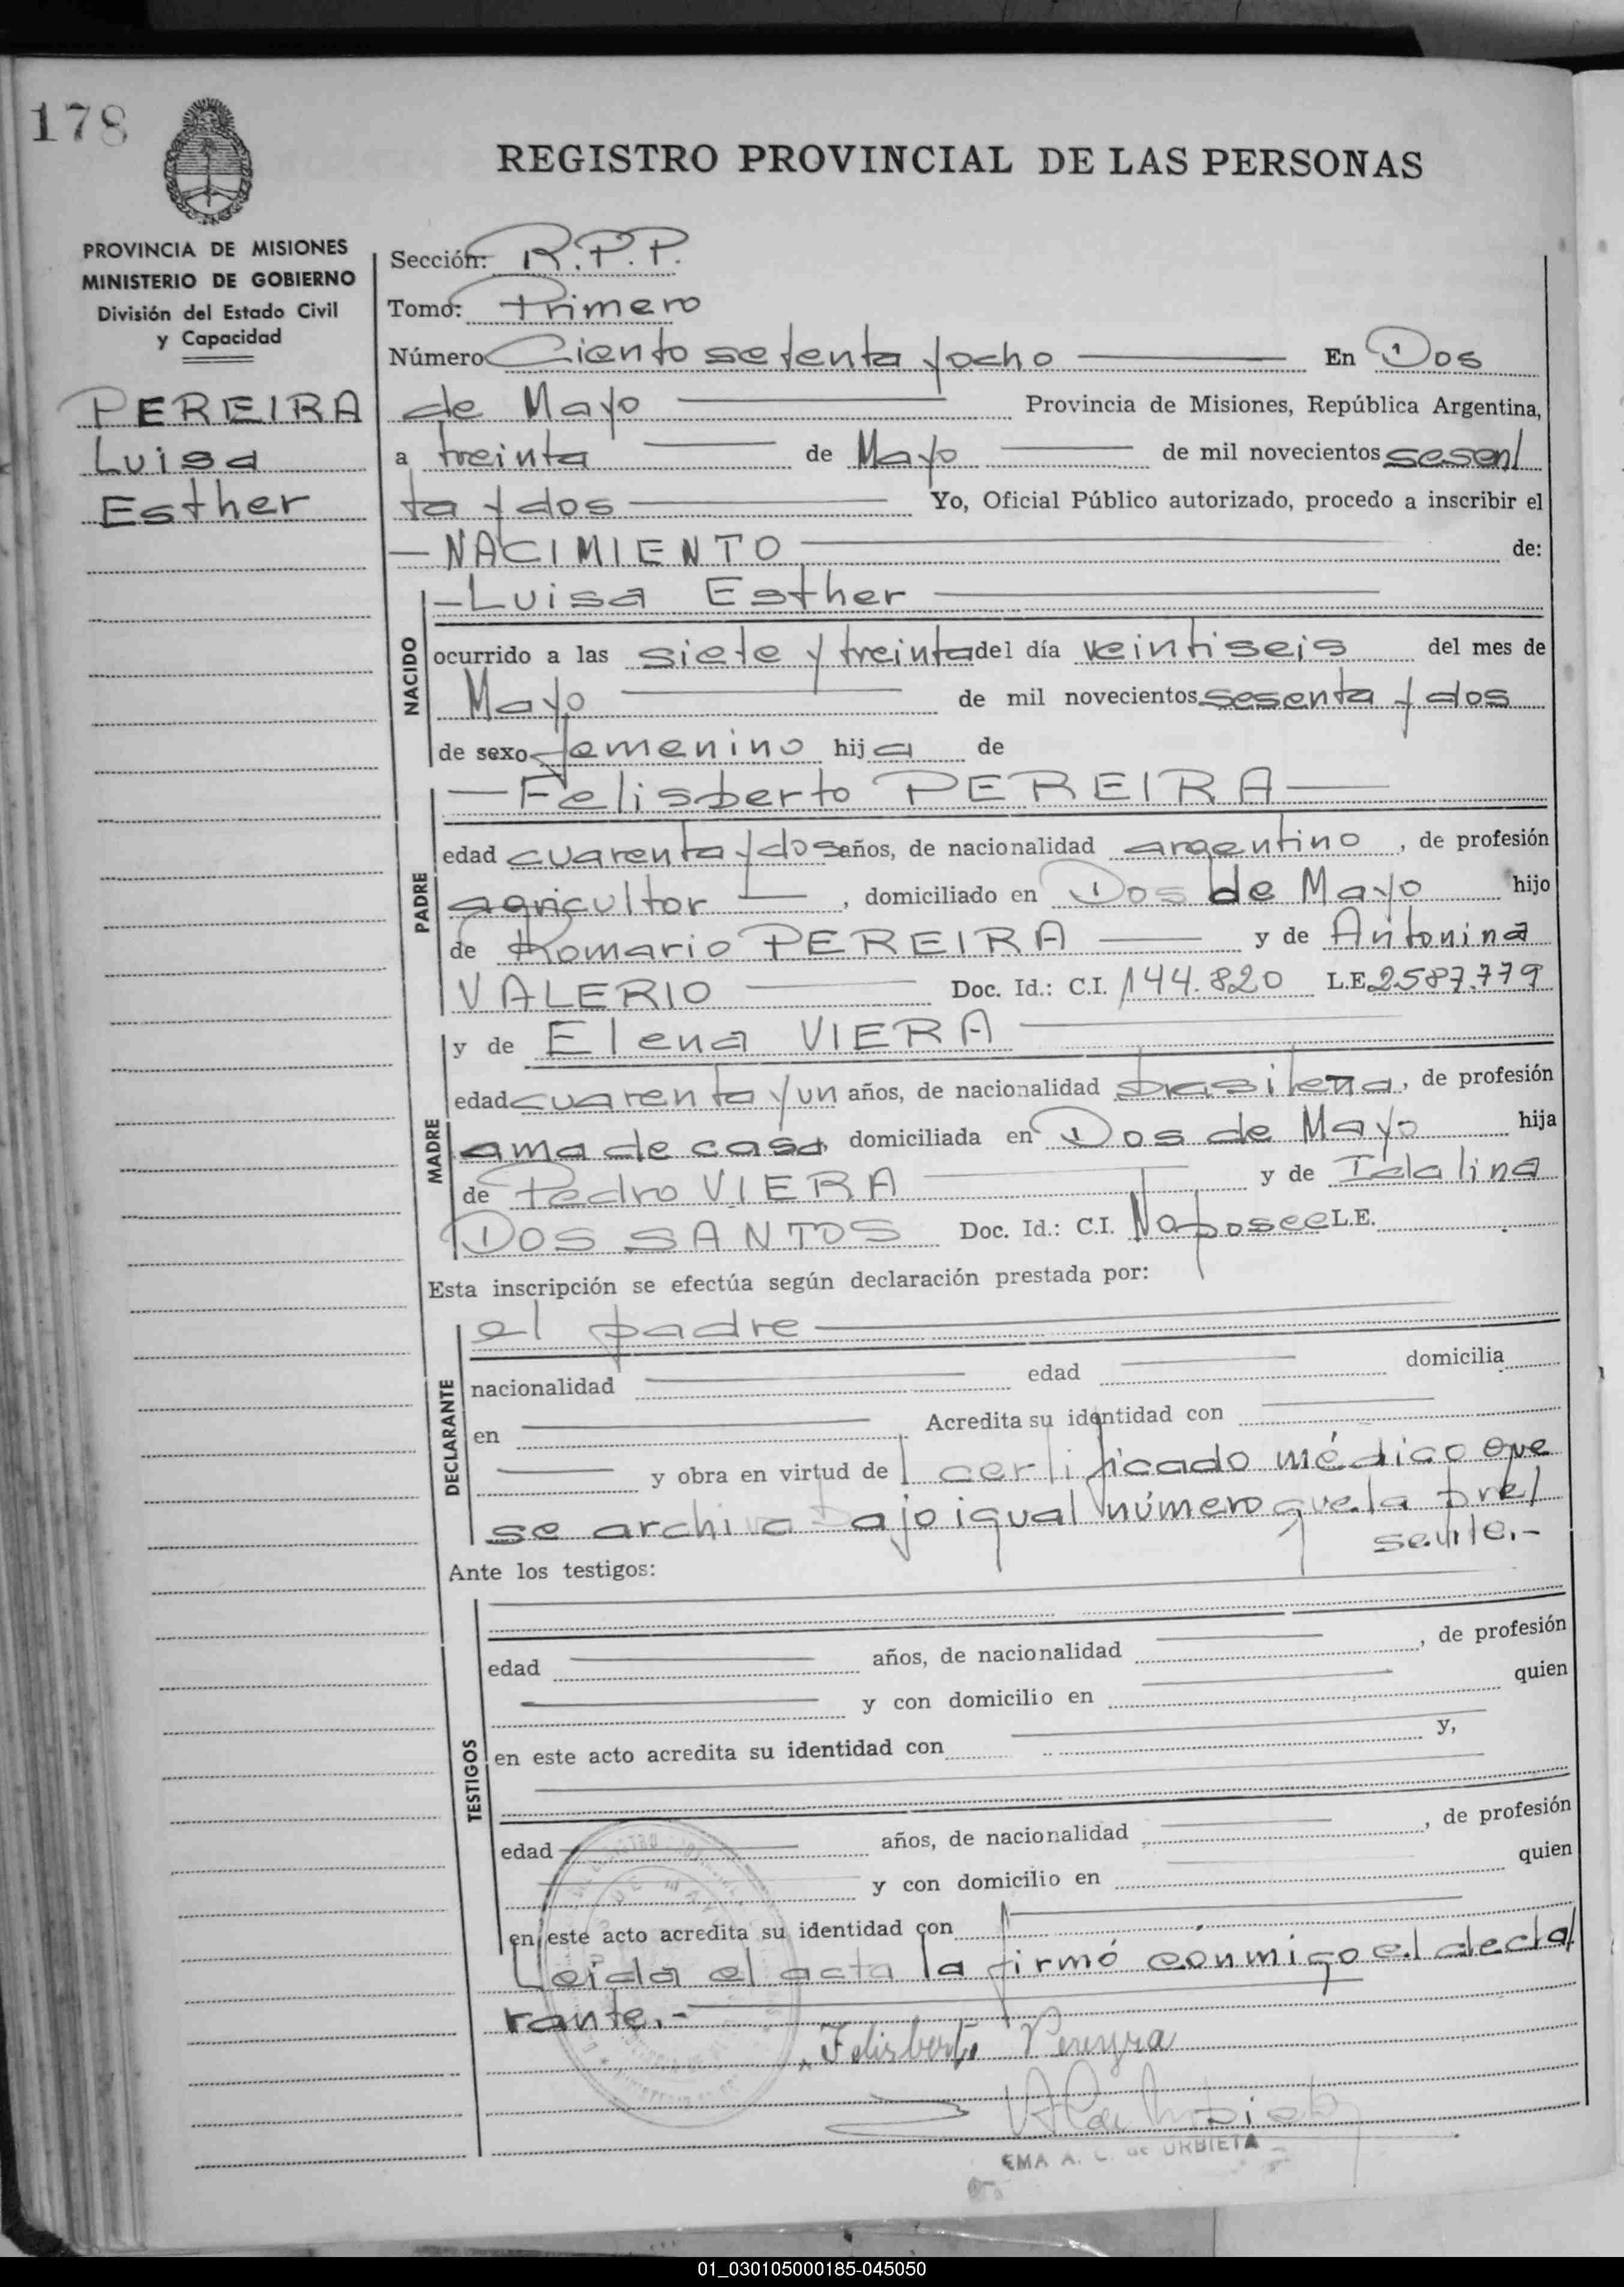 178
REGISTRO PROVINCIAL DE LAS PERSONAS
PROVINCIA DE MISIONES
MINISTERIO DE GOBIERNO
División del Estado Civil
y Capacidad
PEREIRA
Luisa
Esther
Sección: R.P.P.
Tomo: Primero
Número Ciento setenta y ocho En Dos
de Mayo Provincia de Misiones, República Argentina,
a treinta de Mayo de mil novecientos sesen/
ta y dos Yo, Oficial Público autorizado, procedo a inscribir el
NACIMIENTO de:
NACIDO
Luisa Esther
ocurrido a las siete y treinta del día veintiseis del mes de
Mayo de mil novecientos sesenta y dos
de sexo femenino hija de
PADRE
Felisberto PEREIRA
edad cuarenta y dos años, de nacionalidad argentino, de profesión
agricultor, domiciliado en Dos de Mayo hijo
de Romario PEREIRA y de Antonina
VALERIO Doc. Id.: C.I. 144.820 L.E. 2587.779
MADRE
y de Elena VIERA
edad cuarenta y un años, de nacionalidad brasilena, de profesión
ama de casa, domiciliada en Dos de Mayo hija
de Pedro VIERA y de Idalina
DOS SANTOS Doc. Id.: C.I. No posee L.E.
Esta inscripción se efectúa según declaración prestada por:
DECLARANTE
el padre
nacionalidad edad domicilia
en Acredita su identidad con
y obra en virtud de certificado médico que
se archiva bajo igual número que la pre/
sente.-
Ante los testigos:
TESTIGOS
edad años, de nacionalidad , de profesión
y con domicilio en quien
en este acto acredita su identidad con y,
edad años, de nacionalidad , de profesión
y con domicilio en quien
en este acto acredita su identidad con
Leida el acta la firmó conmigo el decla/
rante.-
Felisberto Pereyra
EMA A. C. de URBIETA
01_030105000185-045050